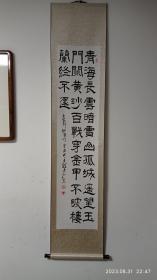 青海長雲暗雪山孤城遥望玉
門關黄沙百戰穿金甲不破樓
蘭終不還
2023.08.31 22:47